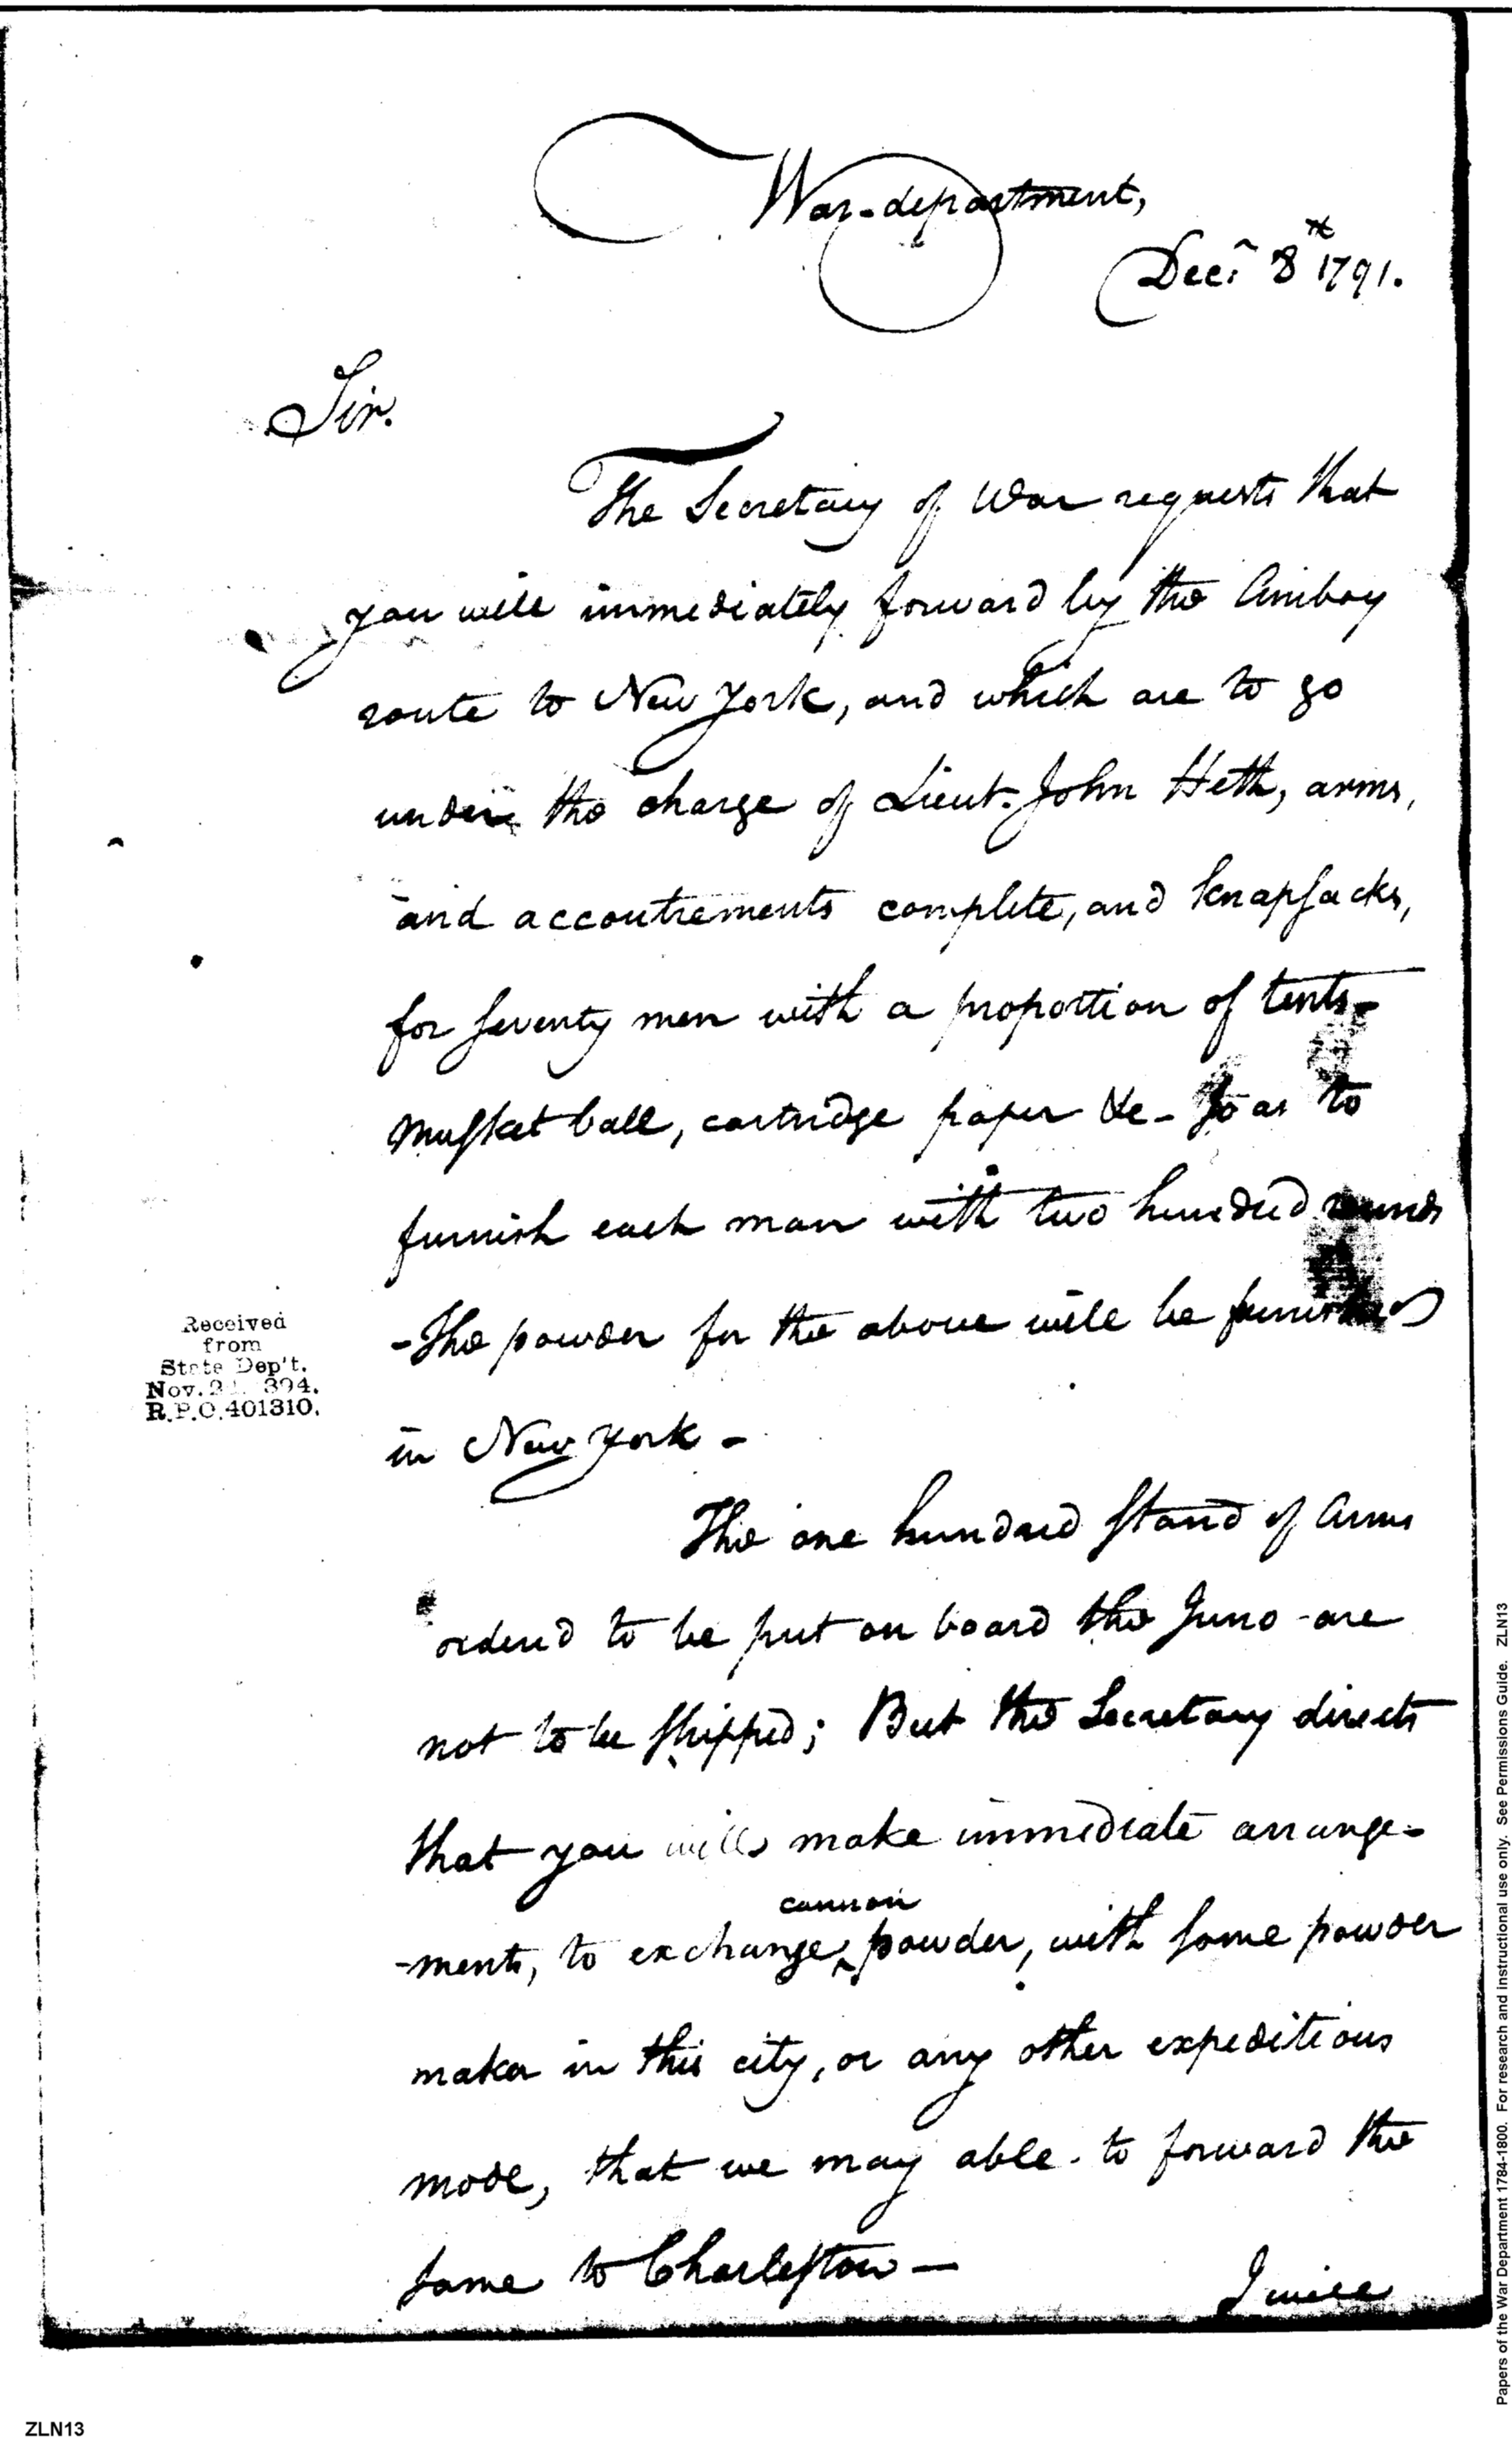 War-department,
Decr 8th 1791.
Sir.
The Secretary of War requests that
you will immediately forward by the Amboy
route to New York, and which are to go
under the charge of Lieut. John Heth, arms,
and accoutrements complete, and knapsacks,
for seventy men with a proportion of tents-
musket ball, cartridge paper &c- so as to
furnish each man with two hundred rounds
-The powder for the above will be furnished
in New York -
The one hundred stand of Arms
ordered to be put on board the Juno are
not to be shipped; But the Secretary directs
that you will make immediate arrange-
cannon
-ments, to exchange ^ powder, with some powder
maker in this city, or any other expeditious
mode, that we may able to forward the
same to Charleston -
I will
Received
from
State Dep't.
Nov. 394.
R.P.O. 401310.
ZLN13
Papers of the War Department 1784-1800. For research and instructional use only. See Permissions Guide. ZLN13